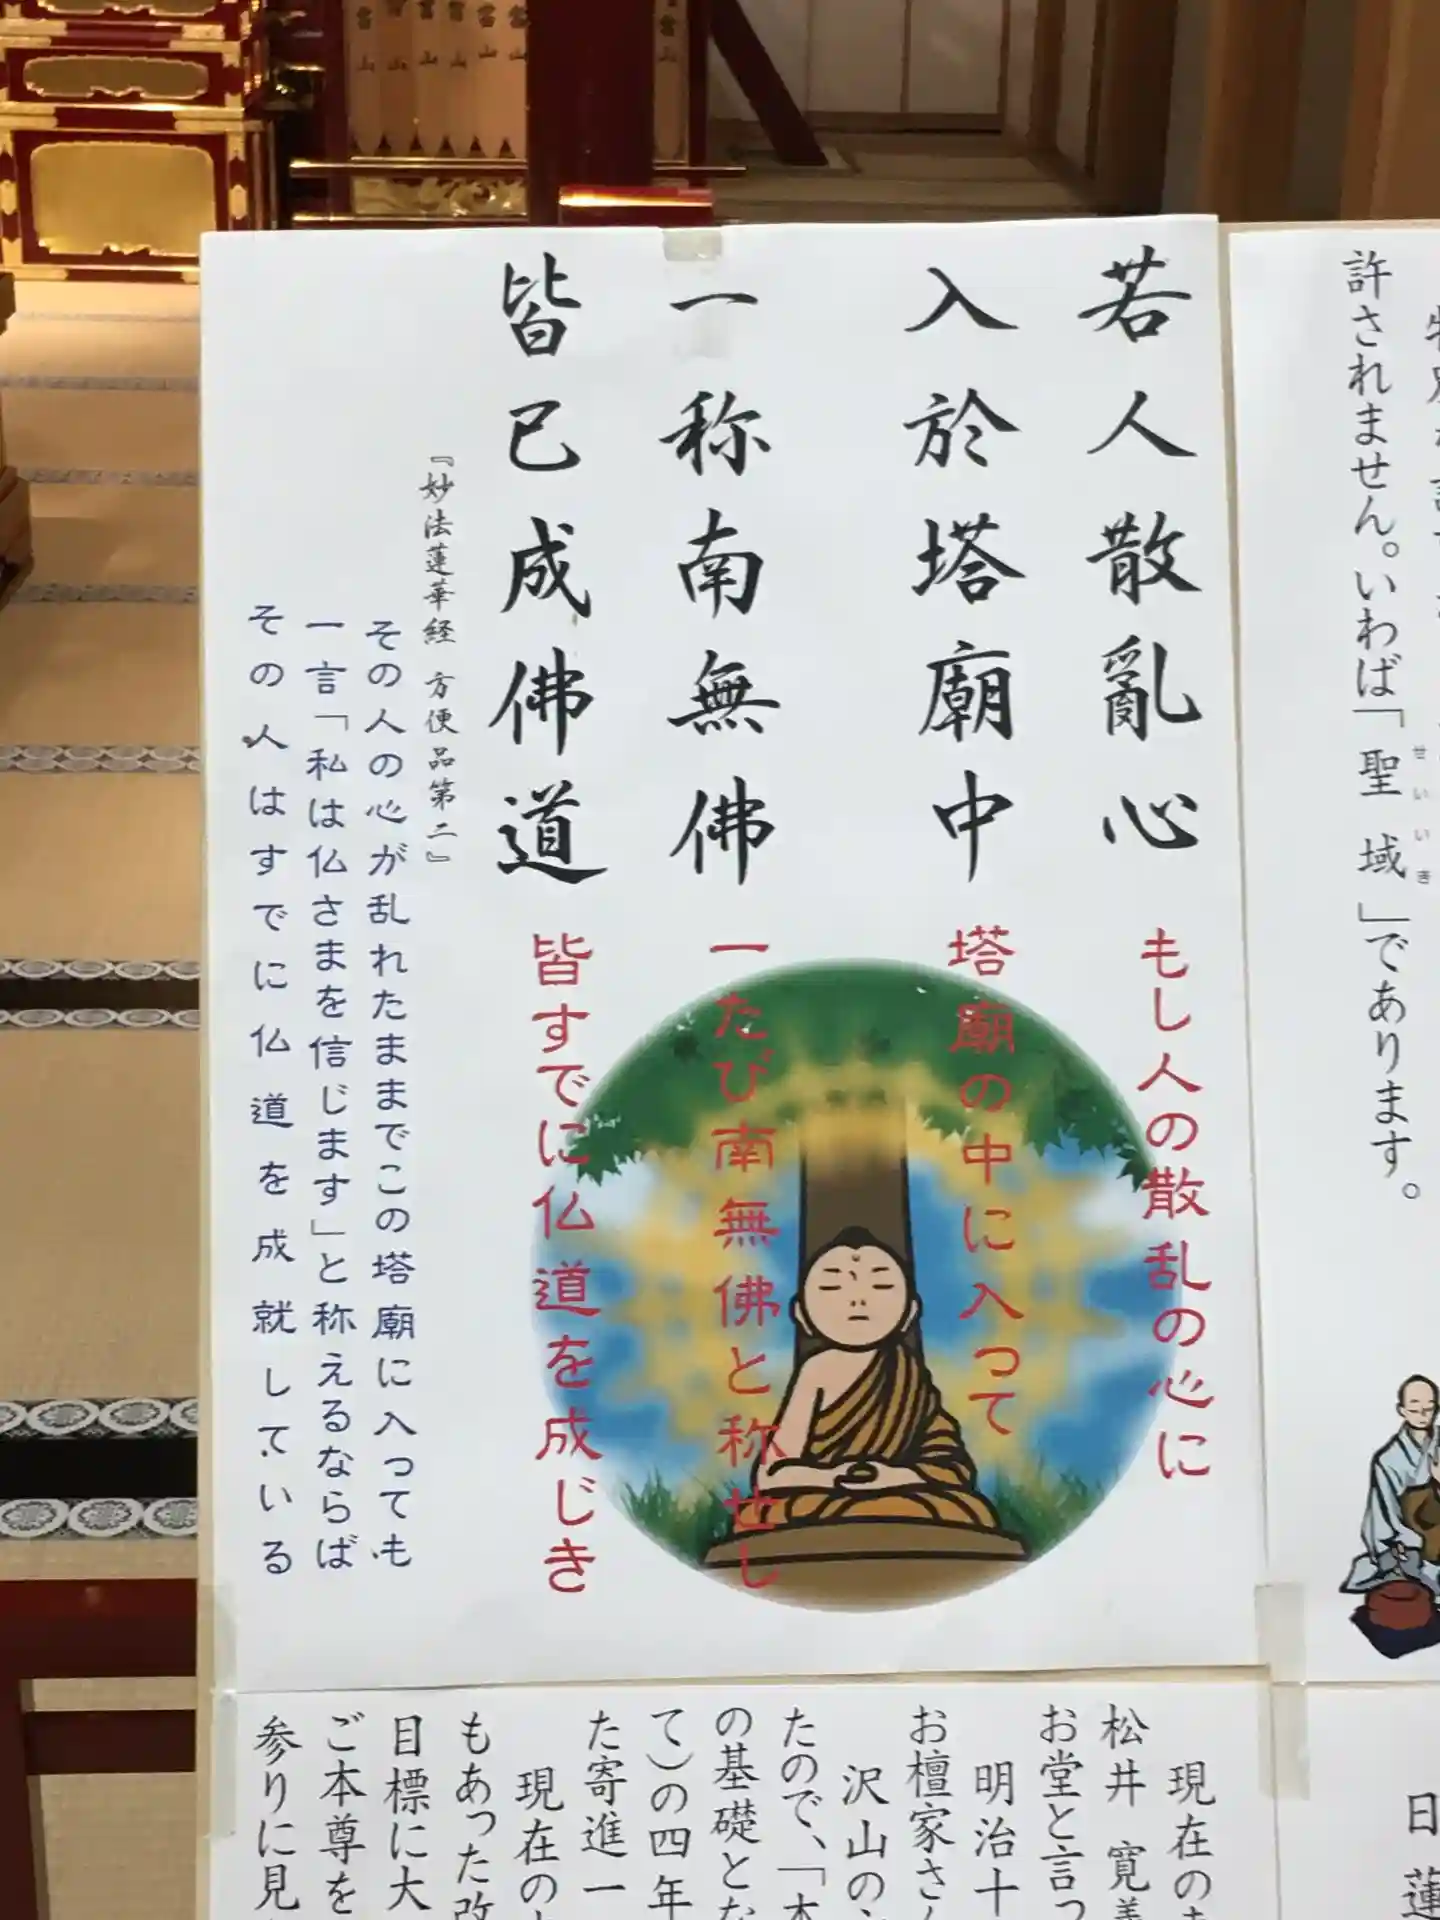 若人散亂心
入於塔廟中
一称南無佛
皆已成佛道
『妙法蓮華経 方便品第二』
もし人の散乱の心に
塔廟の中に入って
一たび南無佛と称せし
皆すでに仏道を成じき
その人の心が乱れたままでこの塔廟に入っても
一言「私は仏さまを信じます」と称えるならば
その人はすでに仏道を成就している
許されません。いわば「聖域」であります。
せいいき
現在の
松井 寛義
お堂と言っ
明治十
お檀家さ
沢山の
たので、「本
の基礎とな
て)の四年
た寄進一
現在の
もあった改
目標に大
ご本尊を
参りに見
日蓮